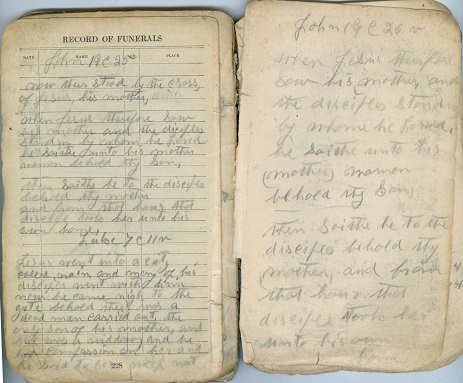 RECORD OF FUNERALS
DATE NAME PLACE
John 19 C 26 v
now ther stood by the cross
of Jesus, his mother,
when Jesus therefore saw
his mother and the disciples
standin by whom he loved
he saithe unto his mother
woman behold thy Son,
then Saithe he to the disciple
behold thy mother
and from that hour that
disciple took her unto his
own home
Luke 7 C 11 v
Jesus went into a city
called nain and many of his
disciples went with him
now he came nigh to the
gate behold ther was a
dead man carried out, the
only son of his mother, and
she was a widdow and he
had compassion on her and
he said to her weep not
228
John 19 C 26 v
when Jesus therefore
saw his mother, and
the disciples standin
by whome he loved,
he saithe unto his
mother, woman
behold thy Son,
then Saithe he to the
disciples behold thy
mother, and from
that hour that
disciple took her
unto his own